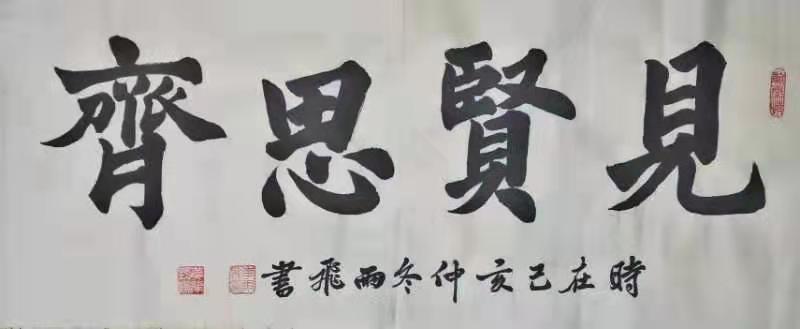 見賢思齊
時在己亥仲冬雨飛書